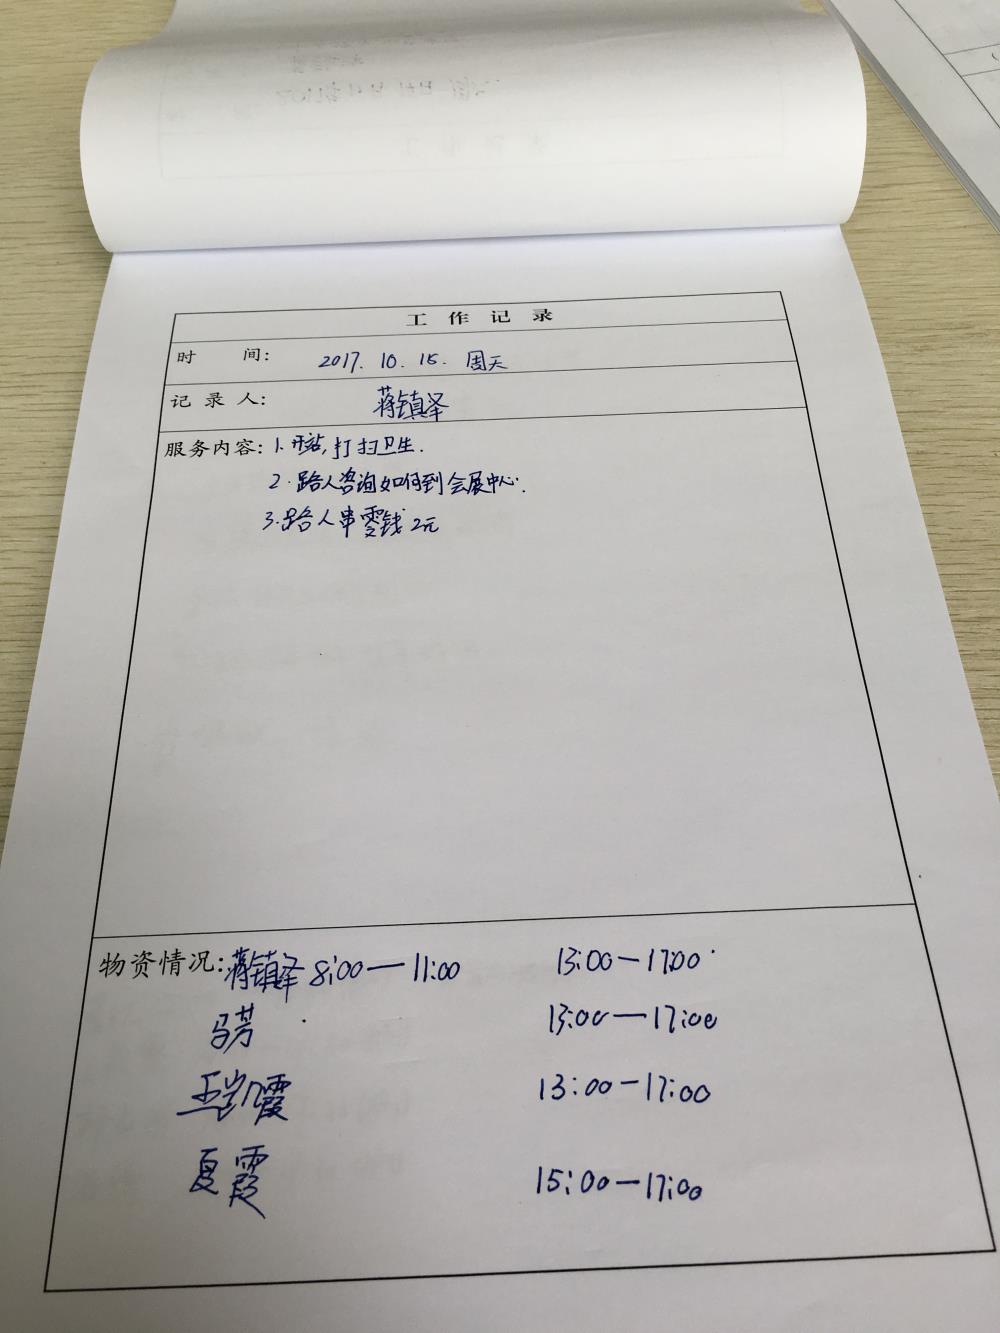 工作记录
时间: 2017.10.15. 周天
记录人: 蒋镇泽
服务内容: 1.开站,打扫卫生.
2.路人咨询如何到会展中心.
3.路人串零钱2元
物资情况: 蒋镇泽 8:00—11:00 13:00—17:00
马芳 13:00—17:00
王凯霞 13:00—17:00
夏霞 15:00—17:00